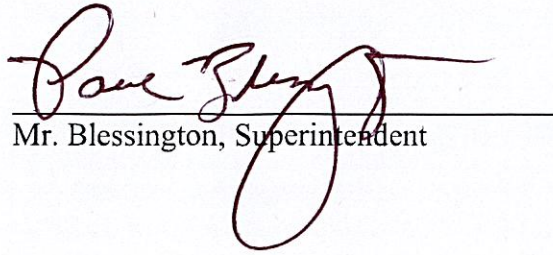 Paul Blessington
Mr. Blessington, Superintendent